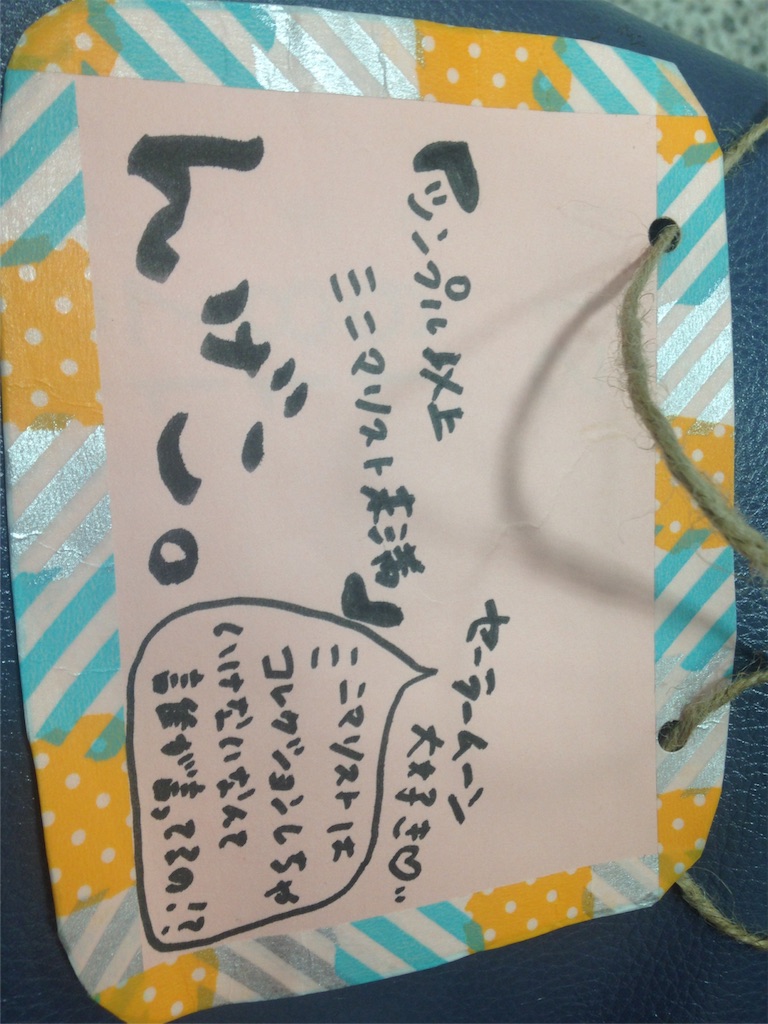 「シンプル以上
ミニマリスト未満」
セーラームーン
大好き♡
ミニマリストは
コレクションしちゃ
いけないなんて
誰が言ってるの!?